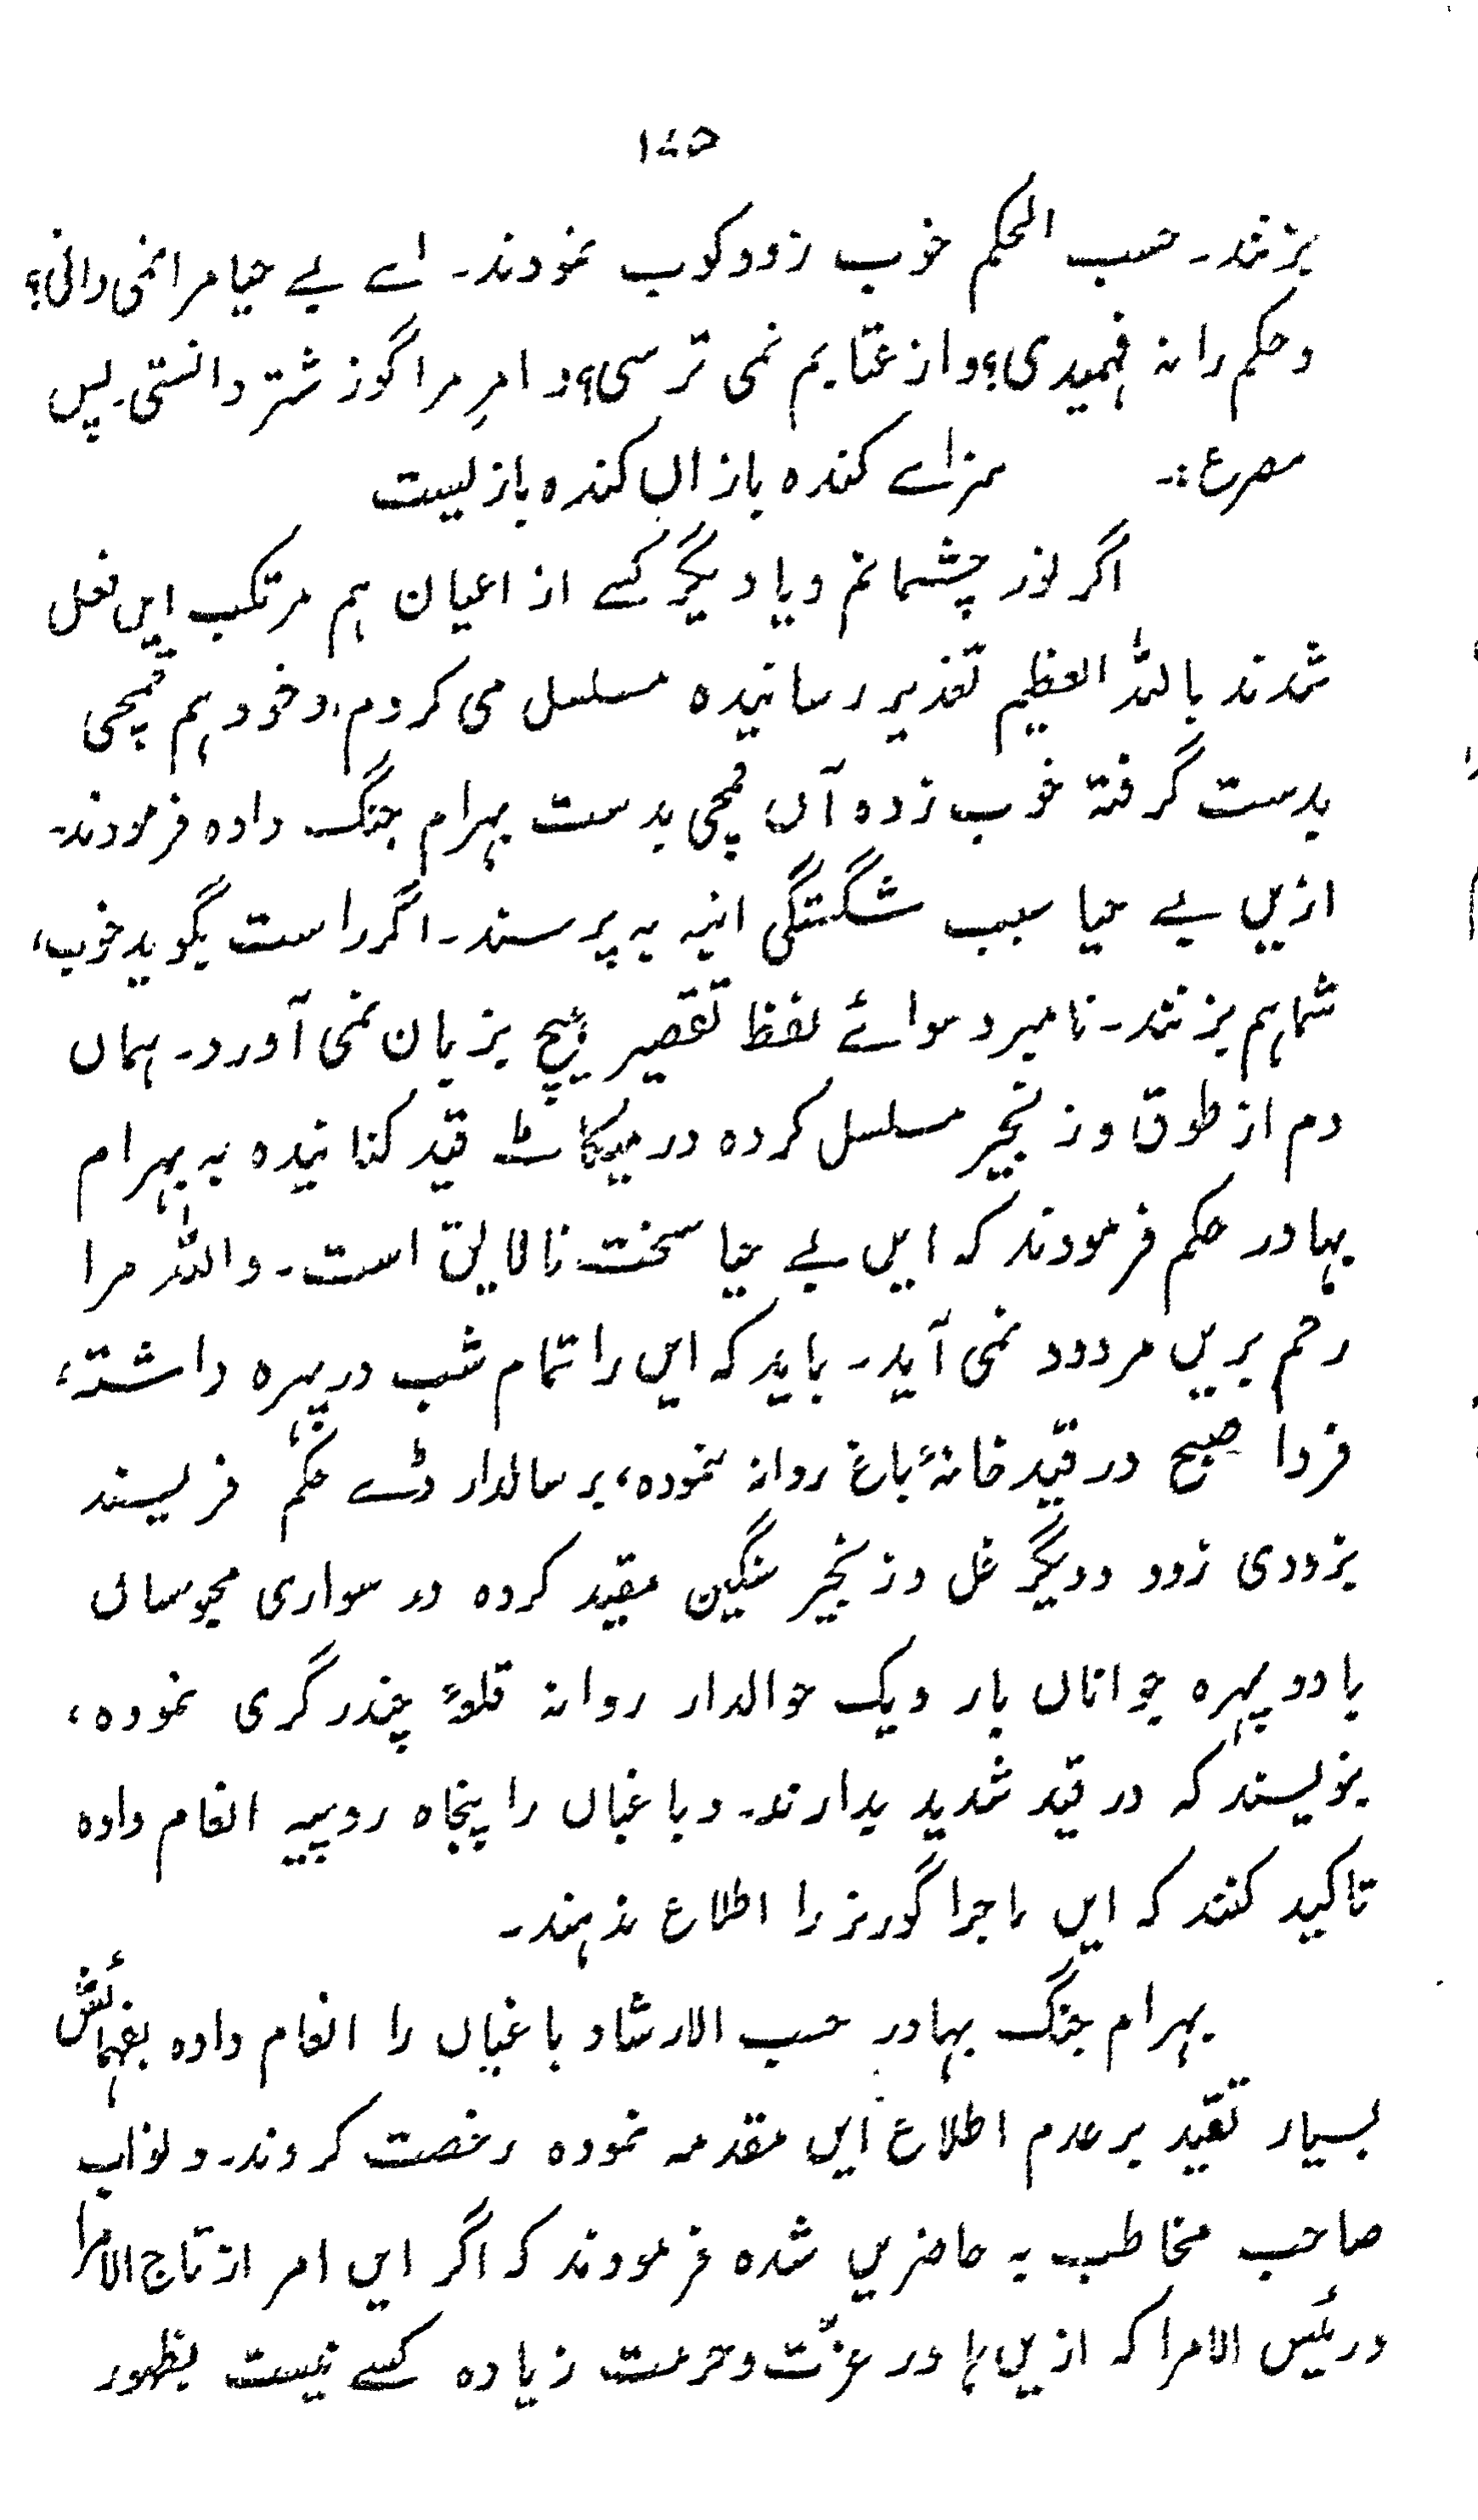 ۱۷۵
بزنند۔ حسب الحکم خوب زدو کوب نمودند۔ اے بے حیا مرا نمی دانی؟
و حکم را نہ فہمیدی؟ و از عتابم نمی ترسی؟ و امرِ مرا گوز شتر دانستی۔ پس
مصرع:۔ سزاے کندہ بازاں کندہ بازیست
اگر نور چشمانم و یا دیگر کسے از اعیان ہم مرتکب ایں فعل
شدند باللہ العظیم تعذیر رسانیدہ مسلسل می کردم، و خود ہم قمچی
بدست گرفتہ خوب زدہ آں قمچی بدست بہرام جنگ دادہ فرمودند۔
ازیں بے حیا سبب شگستگی انبہ بہ پرسند۔ اگر راست بگوید خوب،
شما ہم بزنند۔ نامبرد سوائے لفظ تقصیر ہیچ بزبان نمی آورد۔ ہماں
دم از طوق و زنجیر مسلسل کردہ در میکاٹ قید کنانیدہ بہ بہرام
بہادر حکم فرمودند کہ ایں بے حیا سخت نالایق است۔ واللہ مرا
رحم بریں مردود نمی آید۔ باید کہ ایں را تمام شب در پہرہ داشتہ،
فردا صبح در قید خانۂ باغ روانہ نمودہ، بر سالدار ڈے حکم فریسند
بزودی زود و دیگر غل و زنجیر سنگین مقید کردہ در سواری محبوسانی
با دو پہرہ جواناں بار و یک حوالدار روانہ قلعۂ چندر گری نمودہ،
بنویسند کہ در قید شدید بدارند۔ و باغباں را پنجاہ روپیہ انعام دادہ
تاکید کنند کہ ایں ماجرا گورنر را اطلاع ندہند۔
بہرام جنگ بہادر حسب الارشاد باغباں را انعام دادہ بفہمائش
بسیار تقید بر عدم اطلاع ایں مقدمہ نمودہ رخصت کردند۔ و نواب
صاحب مخاطب بہ حاضریں شدہ فرمودند کہ اگر ایں امر از تاج الامرا
و رئیس الامرا کہ ازیں ہا در عزّت و حرمت زیادہ کسے نیست بظہور